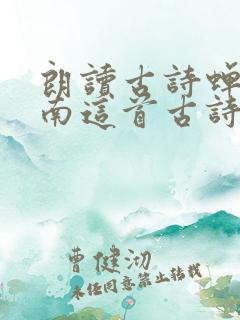 朗讀古詩蟬
南這首古詩
曹健沏
未经同意禁止转载